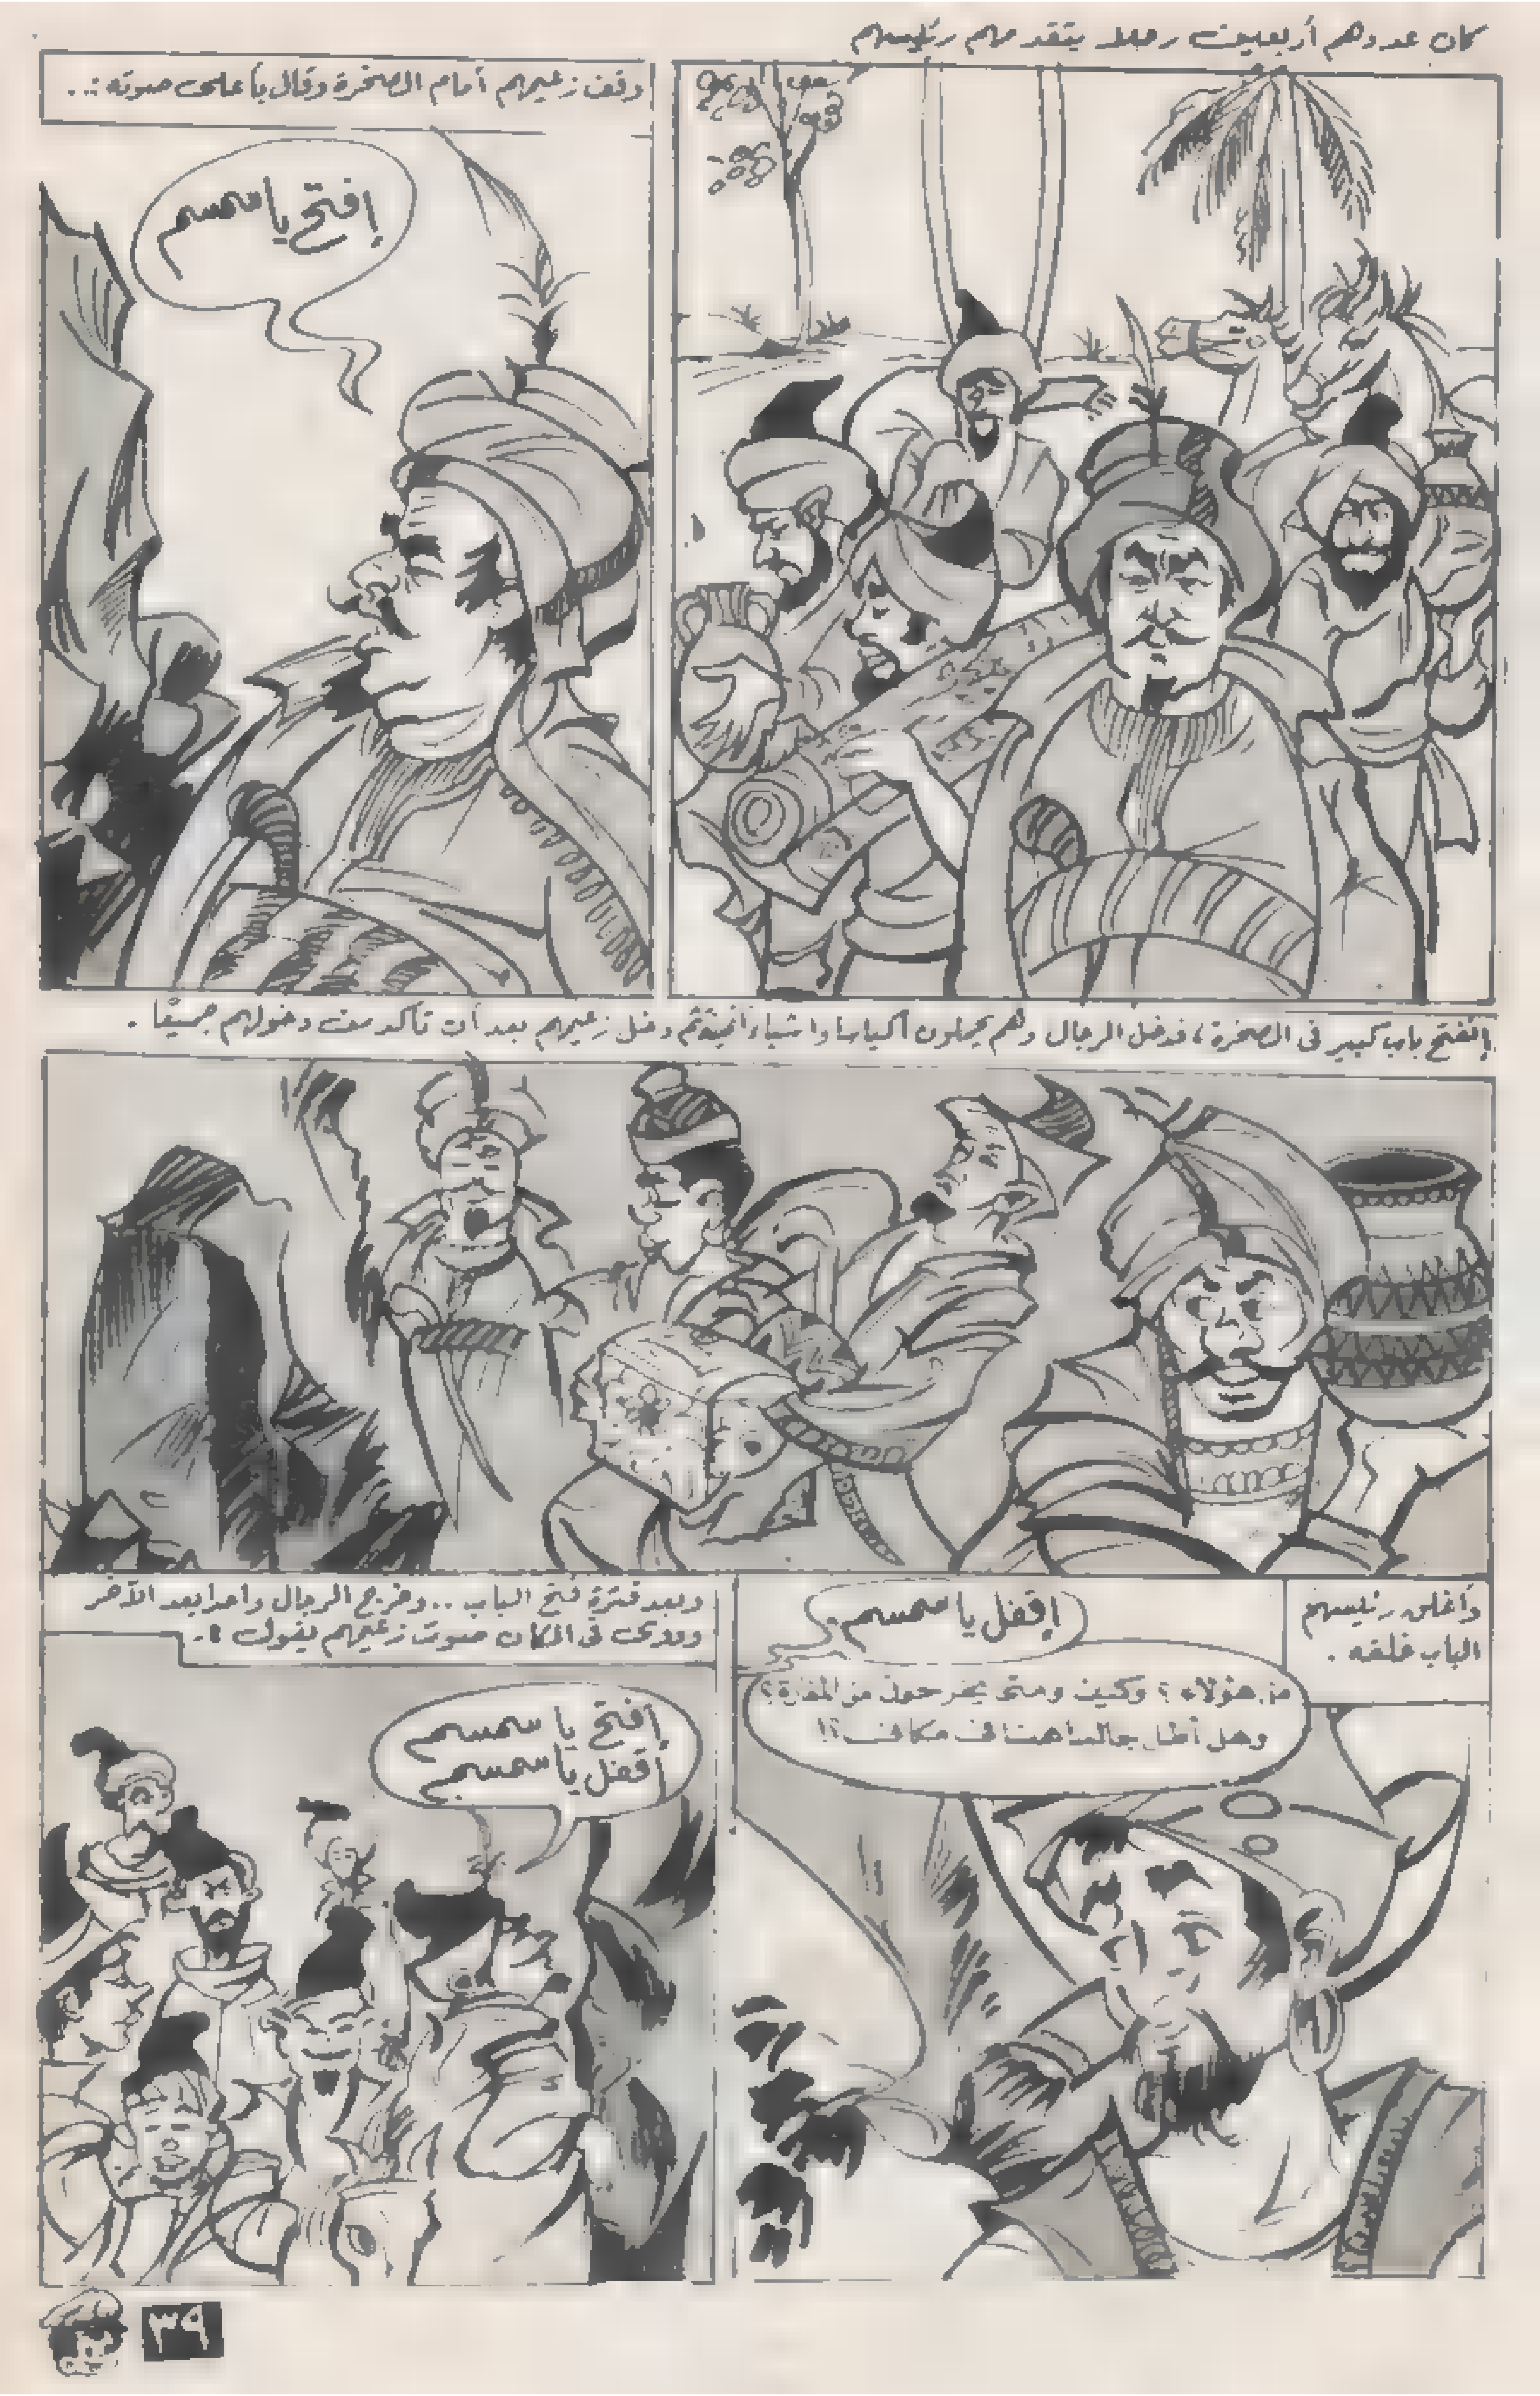 كان عددهم أربعين رجلا يتقدمهم رئيسهم
وقف زعيمهم أمام الصخرة وقال بأعلى صوته :..
إفتح يا سمسم
إنفتح باب كبير فى الصخرة ، فدخل الرجال وهم يحملون أكياسا وأشياء أخرى ثم دخل زعيمهم بعد أن تأكد من دخولهم جميعًا .
وأغلق رئيسهم
الباب خلفه .
إقفل يا سمسم
من هؤلاء ؟ وكيف ومتى يخرجون من المغارة ؟
وهل أظل جالسا هنا فى مكانى ؟!
وبعد فترة فتح الباب .. وخرج الرجال واحدا بعد الآخر
ودوى فى المكان صوت زعيمهم يقول :.
إفتح يا سمسم
أقفل يا سمسم
٣٩